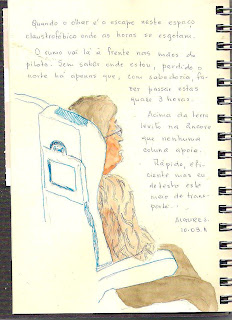 Quando o olhar é o escape neste espaço
claustrofóbico onde as horas se esgotam.
O rumo vai lá à frente nas mãos do
piloto. Sem saber onde estou, perdido o
norte há apenas que, com sabedoria, fa-
zer passar estas
quase 3 horas.
Acima da terra
levito na âncora
que nenhuma
coluna apoia.
Rápido, efi-
ciente mas eu
detesto este
meio de trans-
porte...